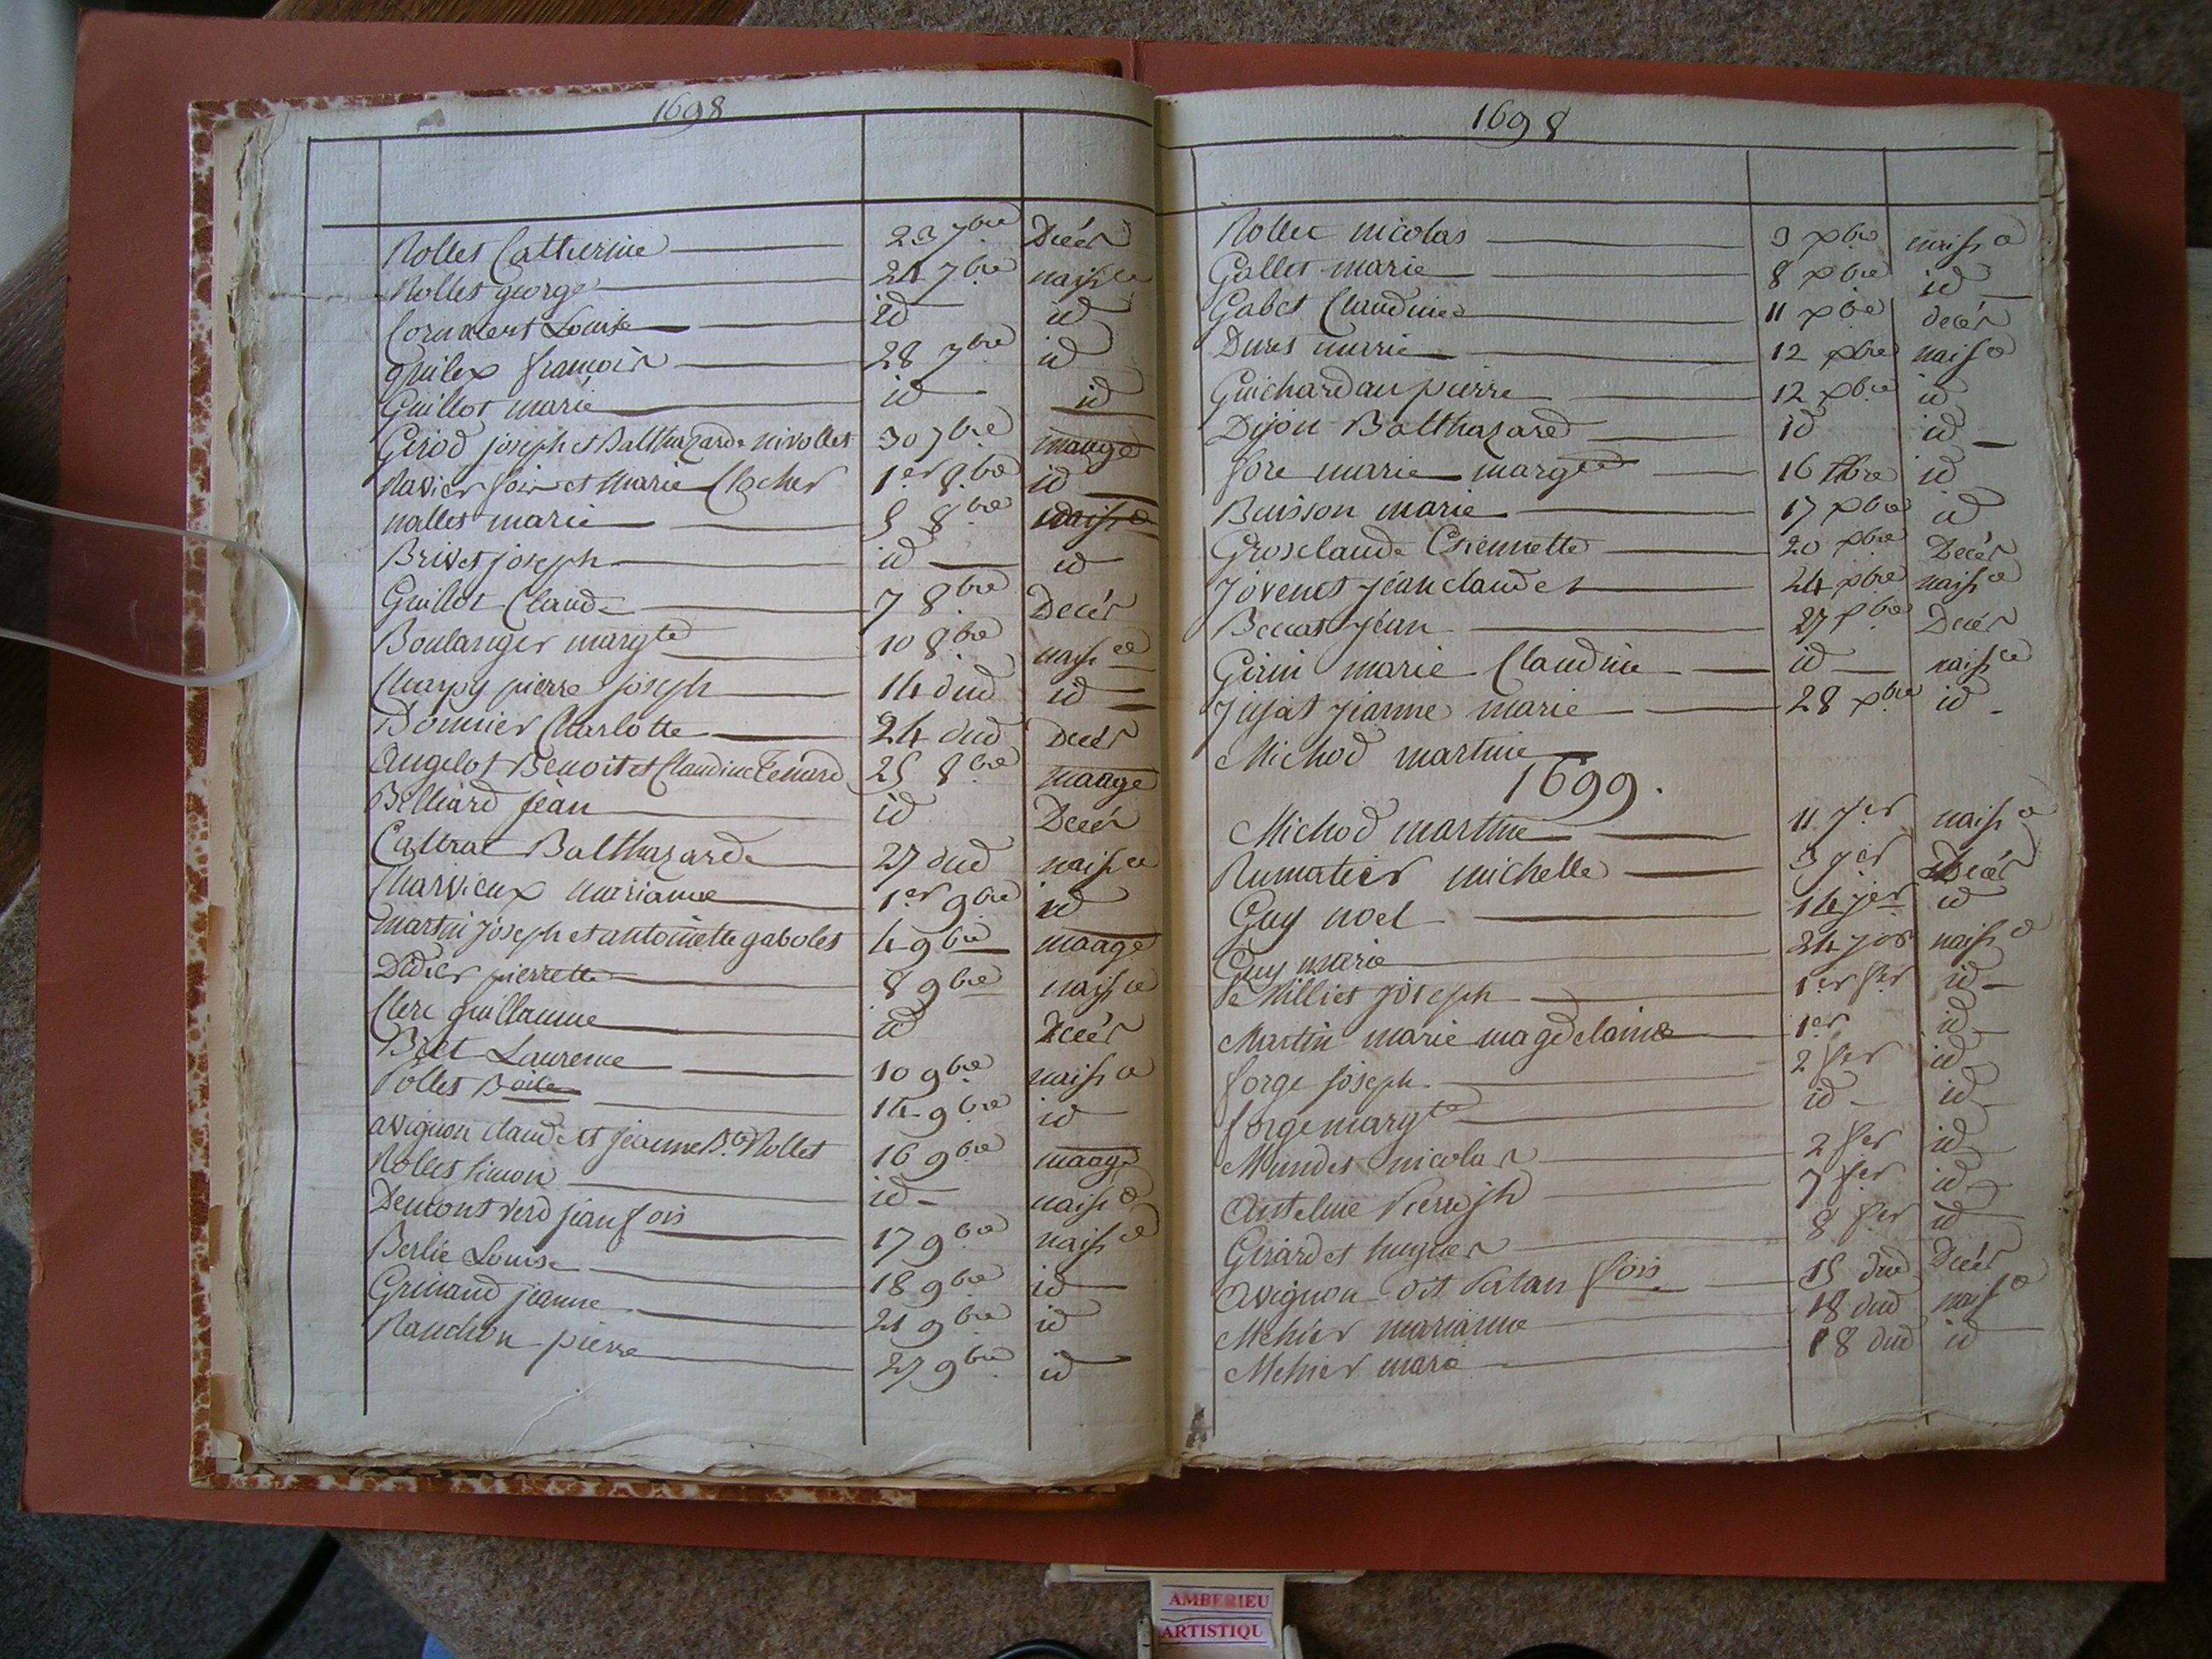 1698
Rollet Catherine 23 7bre Decés
Rollet george 24 7bre naisce
Cormaert Louise id id
guilex francois 28 7bre id
Guillot marie id id
Gerod joseph et Balthazarde nivollet 30 7bre maage
Ravier fois et marie Clocher 1er 8bre id
nallet marie 5 8bre naisce
Brivet joseph id id
Guillot Claude 7 8bre Decés
Boulanger margte 10 8bre naisce
Charpy pierre joseph 14 dud id
Bonnier Charlotte 24 dud Decés
Angelot Benoit et Claudine Tenard 25 8bre maage
Belliard jean id Decés
Cattrat Balthazarde 27 dud naisce
Charvieux marianne 1er 9bre id
martin joseph et antoinette gabolet 4 9bre maage
Didier pierrette 8 9bre naisce
Clerc guillaume id Decés
Bret Laurence 10 9bre naisce
Pollet 14 9bre id
avignon claude et jeanne Bte Rollet 16 9bre maage
Rollet simon id naisce
Demont verd jean fois 17 9bre naisce
Berlie Louise 18 9bre id
Grinand jeanne 21 9bre id
Ranchon pierre 27 9bre id
1698
Rollet nicolas 3 xbre naisce
Gallet marie 8 xbre id
Gabet Claudine 11 xbre decés
Duret marie 12 xbre naisce
Guichardan pierre 12 xbre id
Dijon Balthazard id id
fore marie margte 16 xbre id
Buisson marie 17 xbre id
Grosclaude Etiennette 20 xbre Decés
Jovenet jean claude 24 xbre naisce
Beccat jean 27 xbre Decés
Girin marie Claudine id naisce
Jujat jeanne marie 28 xbre id
Michod martine
1699.
Michod martine 11 jer naisce
Rumatier michelle 3 jer Decés
Guy noel 14 jer id
Guy marie 24 jer naisce
de Milliet joseph 1er fer id
Martin marie magdelaine 1er id
forge joseph 2 fer id
forge margte id id
Mundet nicolas 2 fer id
Antelme Pierre jh 7 fer id
Girardet hugues 8 fer id
avignon dit fois 15 dud Decés
Mehier marianne 18 dud naisce
Mehier marie 18 dud id
AMBERIEU
ARTISTIQU